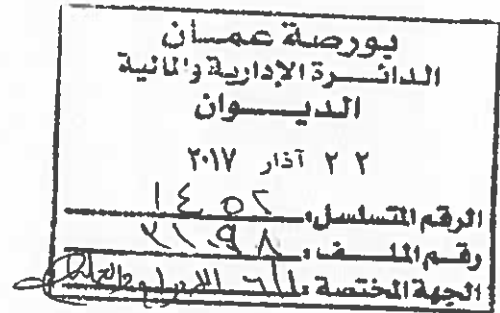 بورصة عمان
الدائرة الإدارية والمالية
الديوان
٢٢ آذار ٢٠١٧
الرقم المتسلسل: ١٤٥٢
رقم الملف: ٢١٠٩٨
الجهة المختصة: